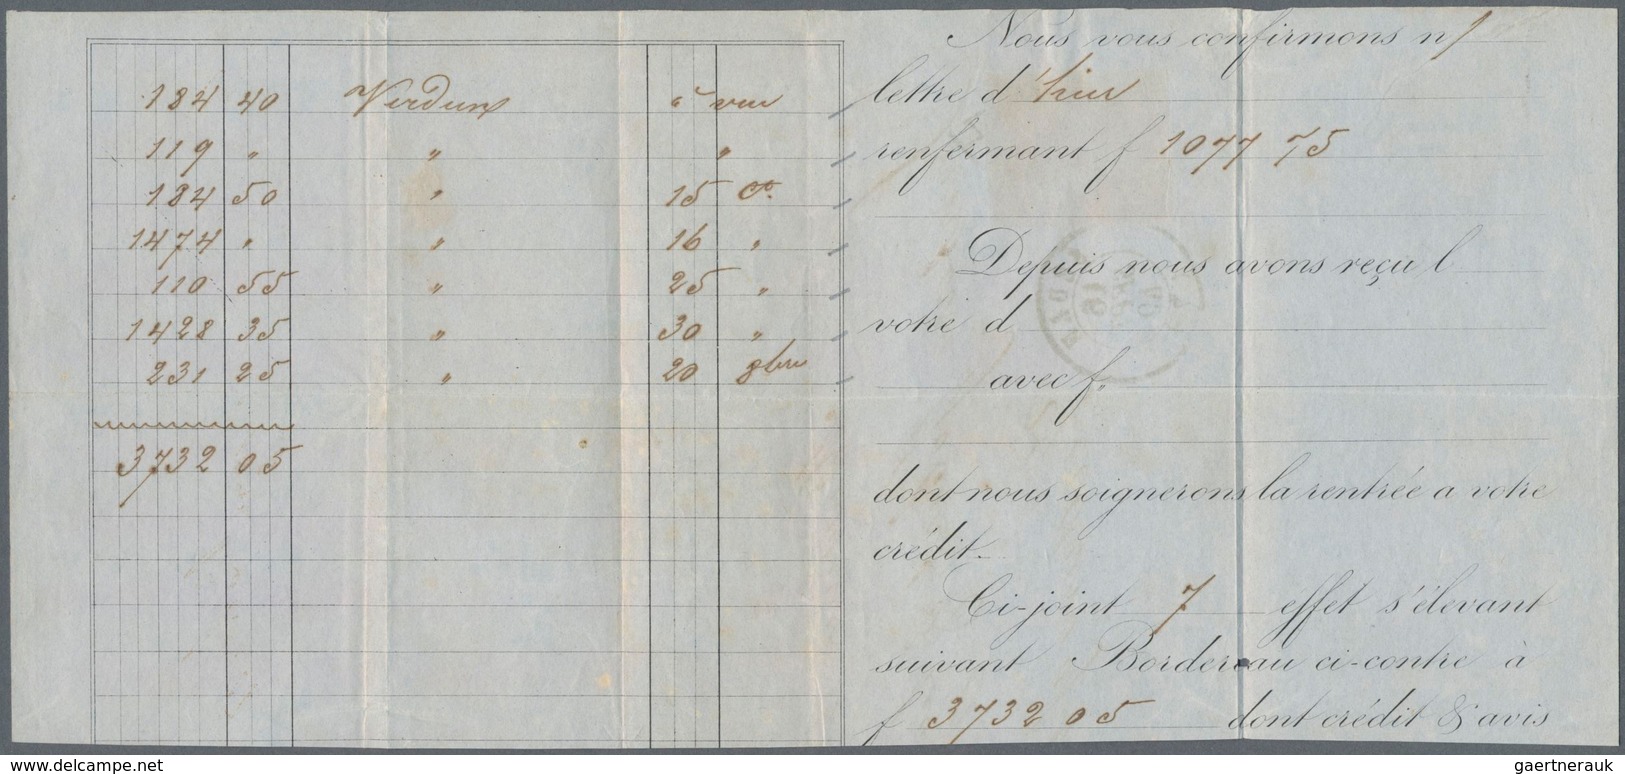 184 40 Verdun à vue
119 " " "
184 50 " 15 ct.
1474 " " 16 "
110 55 " 25 "
1428 35 " 30 "
231 25 " 20 8bre
3732 05
Nous vous confirmons n/
lettre d'hier
renfermant f 1077 75
Depuis nous avons reçu l
votre d
avec f"
dont nous soignerons la rentrée a votre
crédit.
Ci-joint 7 effet s'élevant
suivant Bordereau ci-contre à
f 3732 05 dont crédit & avis
www.delcampe.net
gaertnerauk